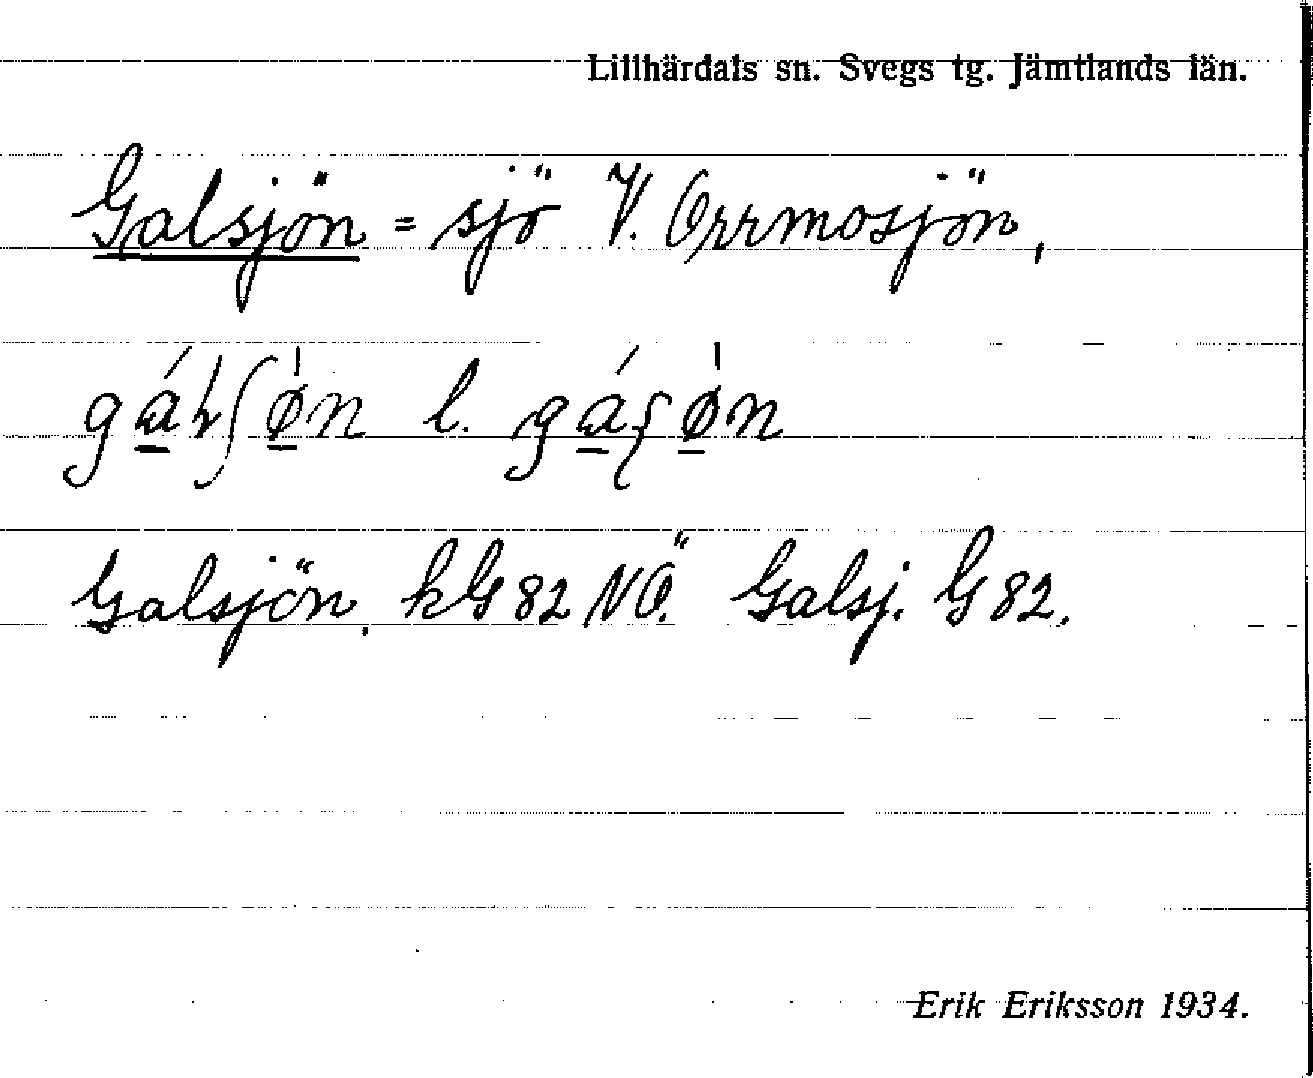 Lillhärdals sn. Svegs tg. Jämtlands län.
Galsjön = sjö V. Orrmosjön,
l.
Galsjön, kG 82 NÖ. Galsj. G 82.
Erik Eriksson 1934.